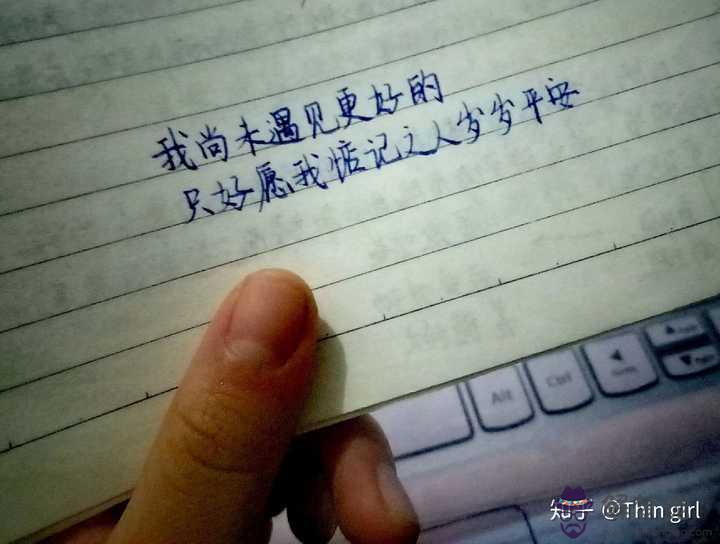 我尚未遇见更好的
只好愿我惦记之人岁岁平安
Alt
Ctrl
知乎 @Thin girl